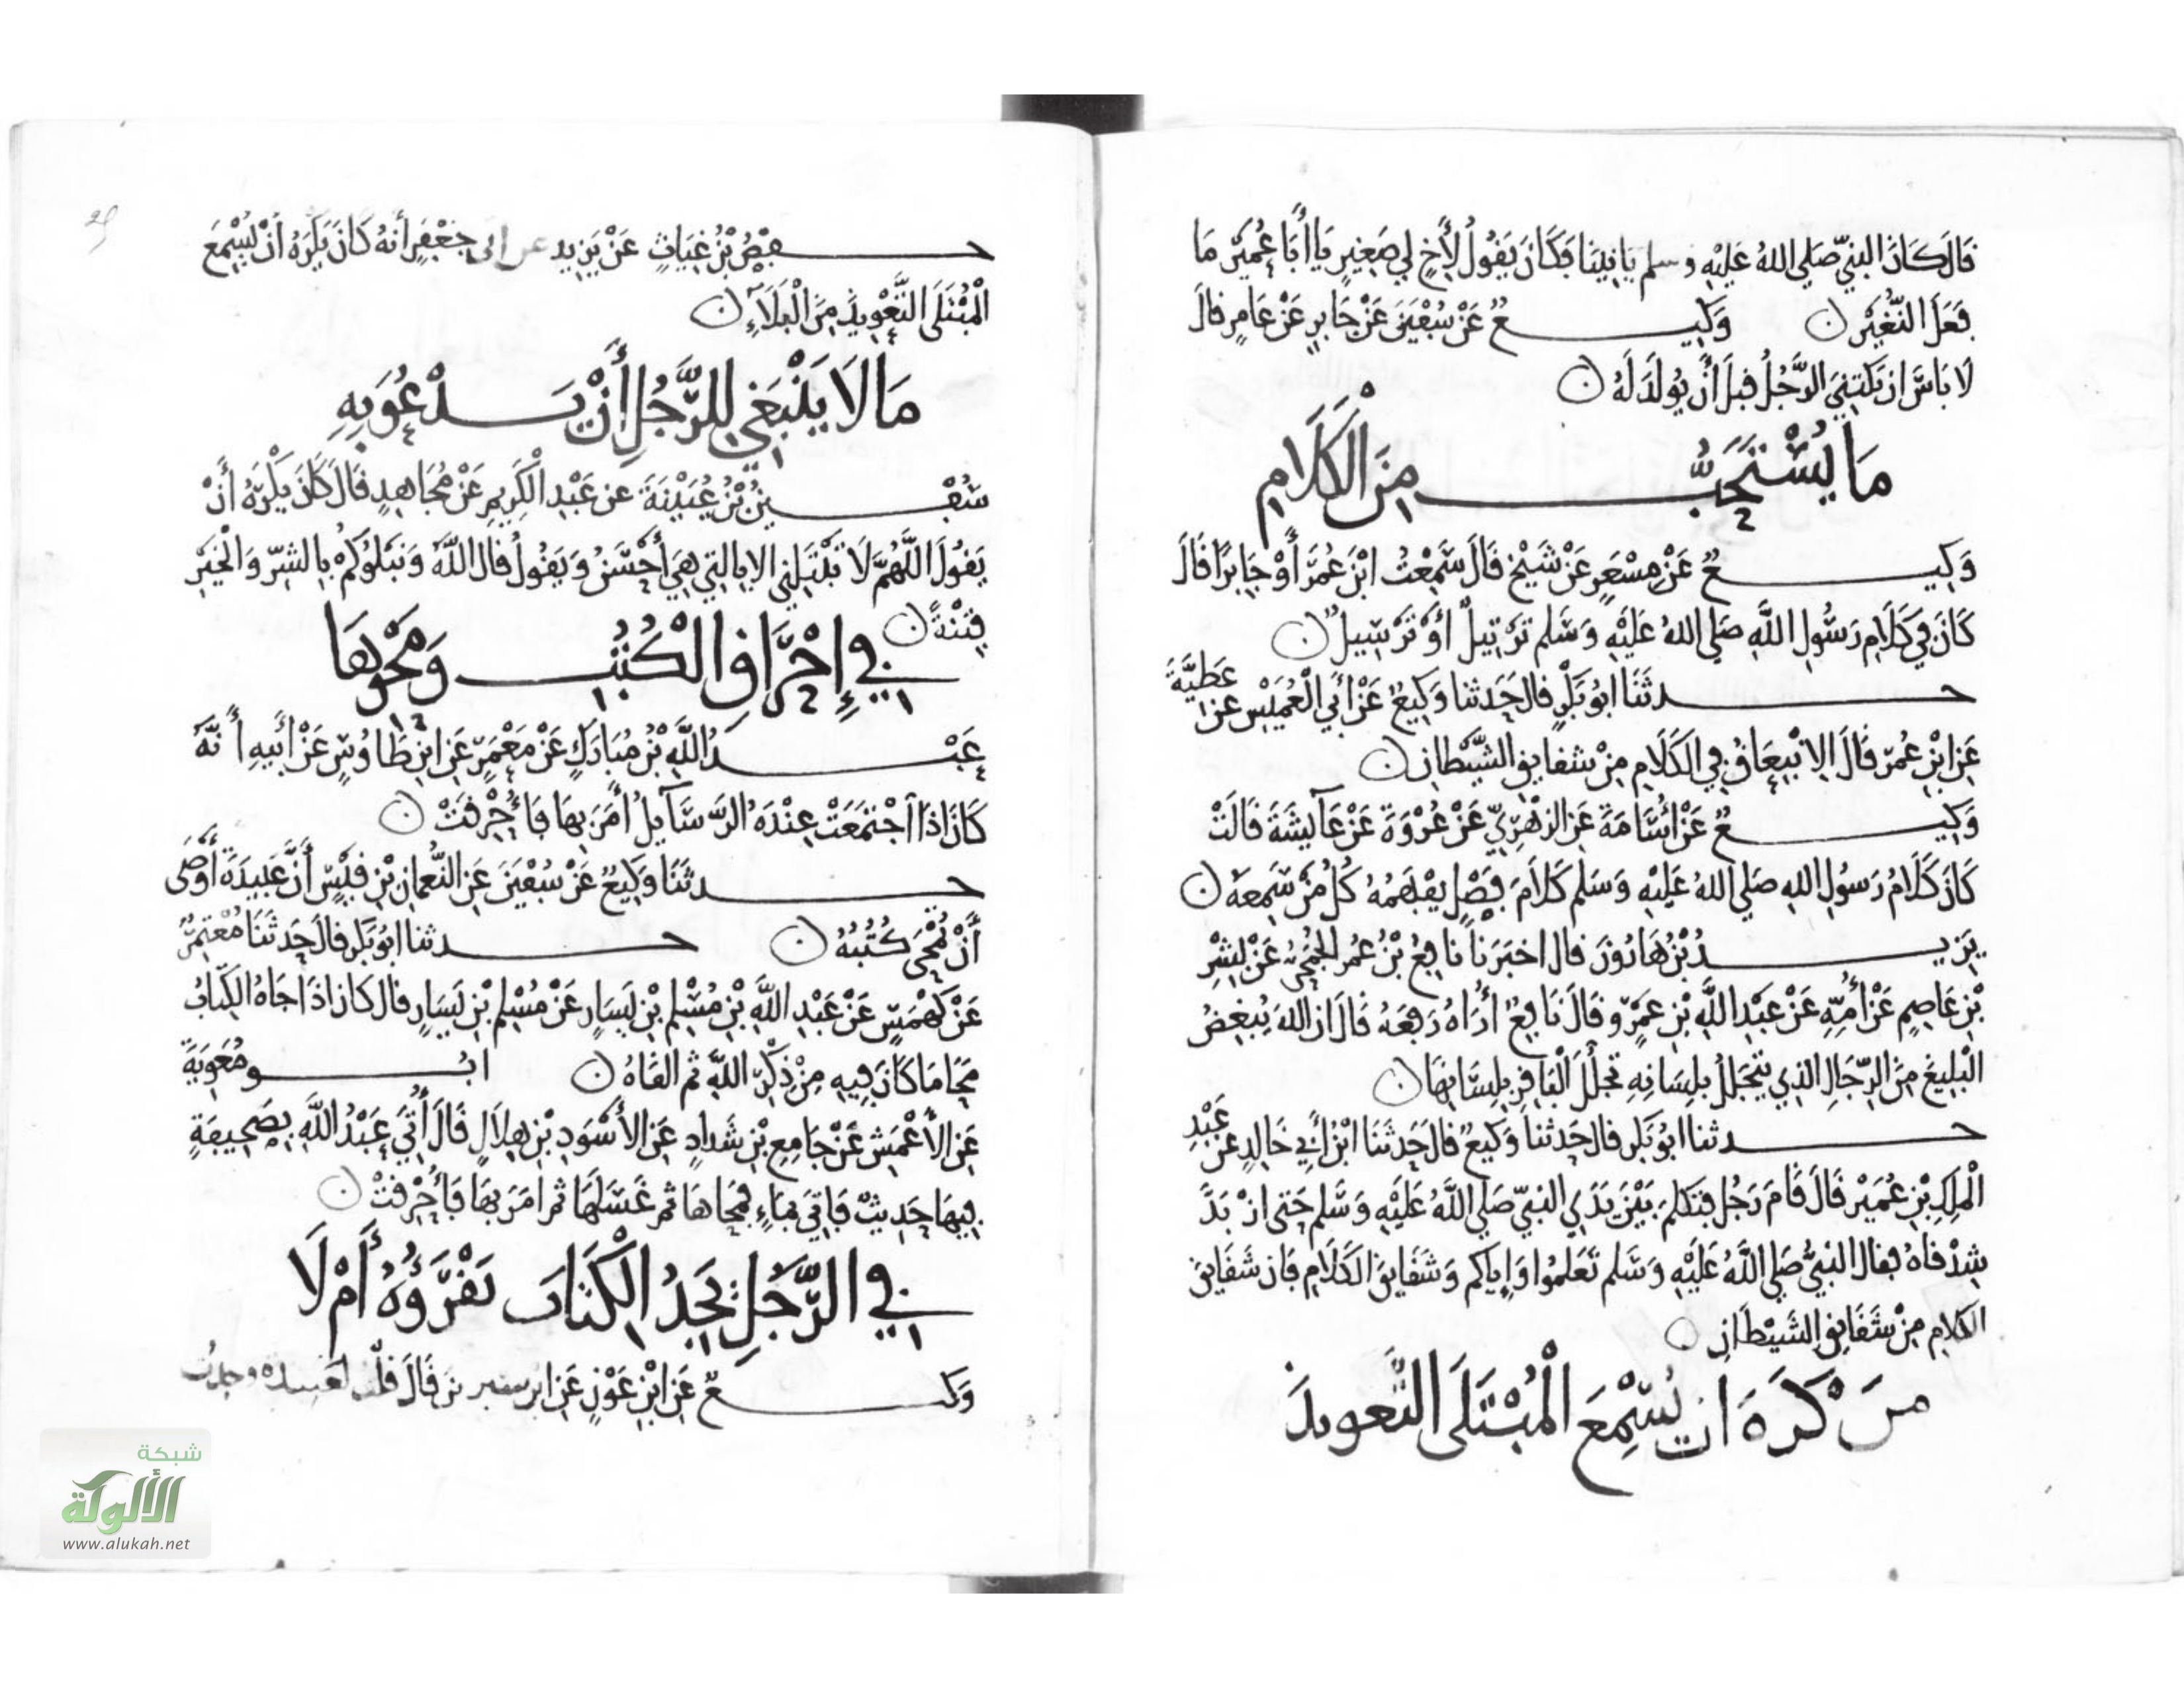 قَالَ كَانَ النبيّ صَلى اللهُ عَليْهِ وسلم يَاتِينَا فَكَانَ يَقُولُ لِأَخٍ لِي صَغِيرٍ يَا أَبَا عُمَيْرٍ مَا
فَعَلَ النُّغَيْرُ ن وَكِيعٌ عَنْ سُفْيَنَ عَنْ جَابِرٍ عَنْ عَامِرٍ قالَ
لَا بَاسَ ان يَكْتَنِيَ الرَّجُلُ قبلَ أَنْ يُولَدَ لَهُ ن
مَا يُسْتَحَبُّ مِنَ الْكَلَامِ
وَكِيعٌ عَنْ مِسْعَرٍ عَنْ شَيْخٍ قَالَ سَمِعْتُ ابْنَ عُمَرَ أَوْ جَابِرًا قَالَ
كَانَ فِي كَلَامِ رَسُولِ اللَّهِ صَلى اللهُ عَلَيْهِ وَسَلم تَرْتِيلٌ أَوْ تَرْسِيلٌ ن
حدثَنَا ابُو بَكْرٍ قال حَدثنا وَكِيعٌ عَنْ أَبِي الْعُمَيْسِ عن عَطِيَّةَ
عَنِ ابْنِ عُمَرَ قَالَ الِانْبِعَاقُ فِي الكَلَامِ مِنْ شقايق الشَّيْطَانِ ن
وَكِيعٌ عَنْ أُسَامَةَ عَنِ الزُّهْرِيِّ عَنْ عُرْوَةَ عَنْ عَائِشَةَ قَالَتْ
كَانَ كَلَامُ رَسُولِ اللهِ صَلي اللهُ عَليْهِ وَسَلم كَلَامَ فَصْلٍ يَفْهَمُهُ كُلُّ مَنْ سَمِعَهُ ن
يَزِيدُ بْنُ هَارُونَ قال اخبَرَنَا نَافِعُ بْنُ عُمَرَ الجُمَحِيُّ عَنْ بِشْرِ
بْنِ عَاصِمٍ عَنْ أُمِّهِ عَنْ عَبْدِ اللَّهِ بْنِ عَمْرٍو قَالَ نَافِعٌ أُرَاهُ رَفَعَهُ قَالَ ان اللهَ يُبْغِضُ
الْبَلِيغَ مِنَ الرِّجَالِ الذِي يتَخَلَّلُ بلِسَانِهِ تخَلُّلَ الْبَاقِرِ بِلِسَانِهَا ن
حدثنا ابُو بَكرٍ قال حَدثنا وَكِيعٌ قالَ حَدثَنَا ابْنُ أَبِي خَالِدٍ عن عَبْدِ
الْمَلِكِ بْنِ عُمَيْرٍ قَالَ قَامَ رَجُلٌ فتَكَلَّمَ بَيْنَ يَدَيِ النبيّ صَلي اللَّهُ عَلَيْهِ وَسَلم حَتى ازْبَدَ
شِدْقاهُ فقال النبيُّ صَلي اللَّهُ عَلَيْهِ وَسَلم تَعَلموا وَإِياكم وَشَقَايِقَ الكَلَامِ فَان شَقَايِقَ
الكلامِ مِنْ شَقَايِقِ الشَيْطَانِ ن
من كَرِهَ ان يُسْمِعَ الْمُبْتَلَى التَّعويذَ
حفْصُ بْنُ غِيَاثٍ عَنْ يَزِيد عن ابى جَعْفَرٍ أَنهُ كَانَ يَكْرَهُ أَنْ يُسْمِعَ
الْمُبْتَلَى التَّعْوِيذَ مِنَ الْبَلَاءِ ن
مَا لَا يَنْبَغِي لِلرَّجُلِ أَنْ يَدْعُوَ بِهِ
سُفْينُ بْنُ عُيَيْنَةَ عن عَبْدِ الْكَرِيمِ عَنْ مُجَاهِدٍ قَالَ كَانَ يَكْرَهُ أَنْ
يَقُولَ اللَّهُمَّ لَا تَبْتَلِنِي الا بِالتِي هِيَ أَحْسَنُ وَيَقُولُ قال اللَّهُ وَنَبْلُوكُمْ بِالشرِّ وَالْخَيْرِ
فِتْنَةً ن
فِي إِحْرَاقِ الْكُتُبِ وَمَحْوِهَا
عَبْدُ اللَّهِ بْنُ مُبَارَكٍ عَنْ مَعْمَرٍ عَنِ ابْنِ طَاوُسٍ عَنْ أَبِيهِ أَنَّهُ
كَانَ اذَا اجْتَمَعَتْ عِنْدَهُ الرَّسَايلُ أَمَرَ بِهَا فَأُحْرِقَتْ ن
حدثَنَا وَكِيعٌ عَنْ سُفْيَنَ عَنِ النُّعْمَانِ بْنِ قَيْسٍ أَنَّ عَبِيدَةَ أَوْصَى
أَنْ تُمْحَى كُتُبُهُ ن حدثنا ابُو بَكْرٍ قالَ حَدثَنَا مُعْتَمِرٌ
عَنْ كَهْمَسٍ عَنْ عَبْدِ اللَّهِ بْنِ مُسْلِمِ بْنِ يَسَارٍ عَنْ مُسْلِمِ بْنِ يَسَارٍ قال كان اذَا جَاهُ الكِتَابُ
مَحَا مَا كَانَ فِيهِ مِنْ ذِكْرِ اللَّهِ ثم القَاهُ ن ابُو مُعَوِيَةَ
عَنِ الأَعْمَشِ عَنْ جَامِعِ بْنِ شَدادٍ عَنِ الأَسْوَدِ بْنِ هِلَالٍ قَالَ أُتِيَ عَبْدُ اللَّهِ بِصَحِيفَةٍ
فِيهَا حَدِيثٌ فَاتِيَ بمَاءٍ فمَحَاهَا ثم غَسَلَهَا ثم امَرَ بِهَا فَأُحْرِقَتْ ن
فِي الرَّجُلِ يَجِدُ الْكِتَابَ يَقْرَؤُهُ أَمْ لَا
وَكيعٌ عَنِ ابْنِ عَوْنٍ عَنِ ابن سيرين قَالَ قلْت لعبيده وجدت
شبكة
الألوكة
www.alukah.net